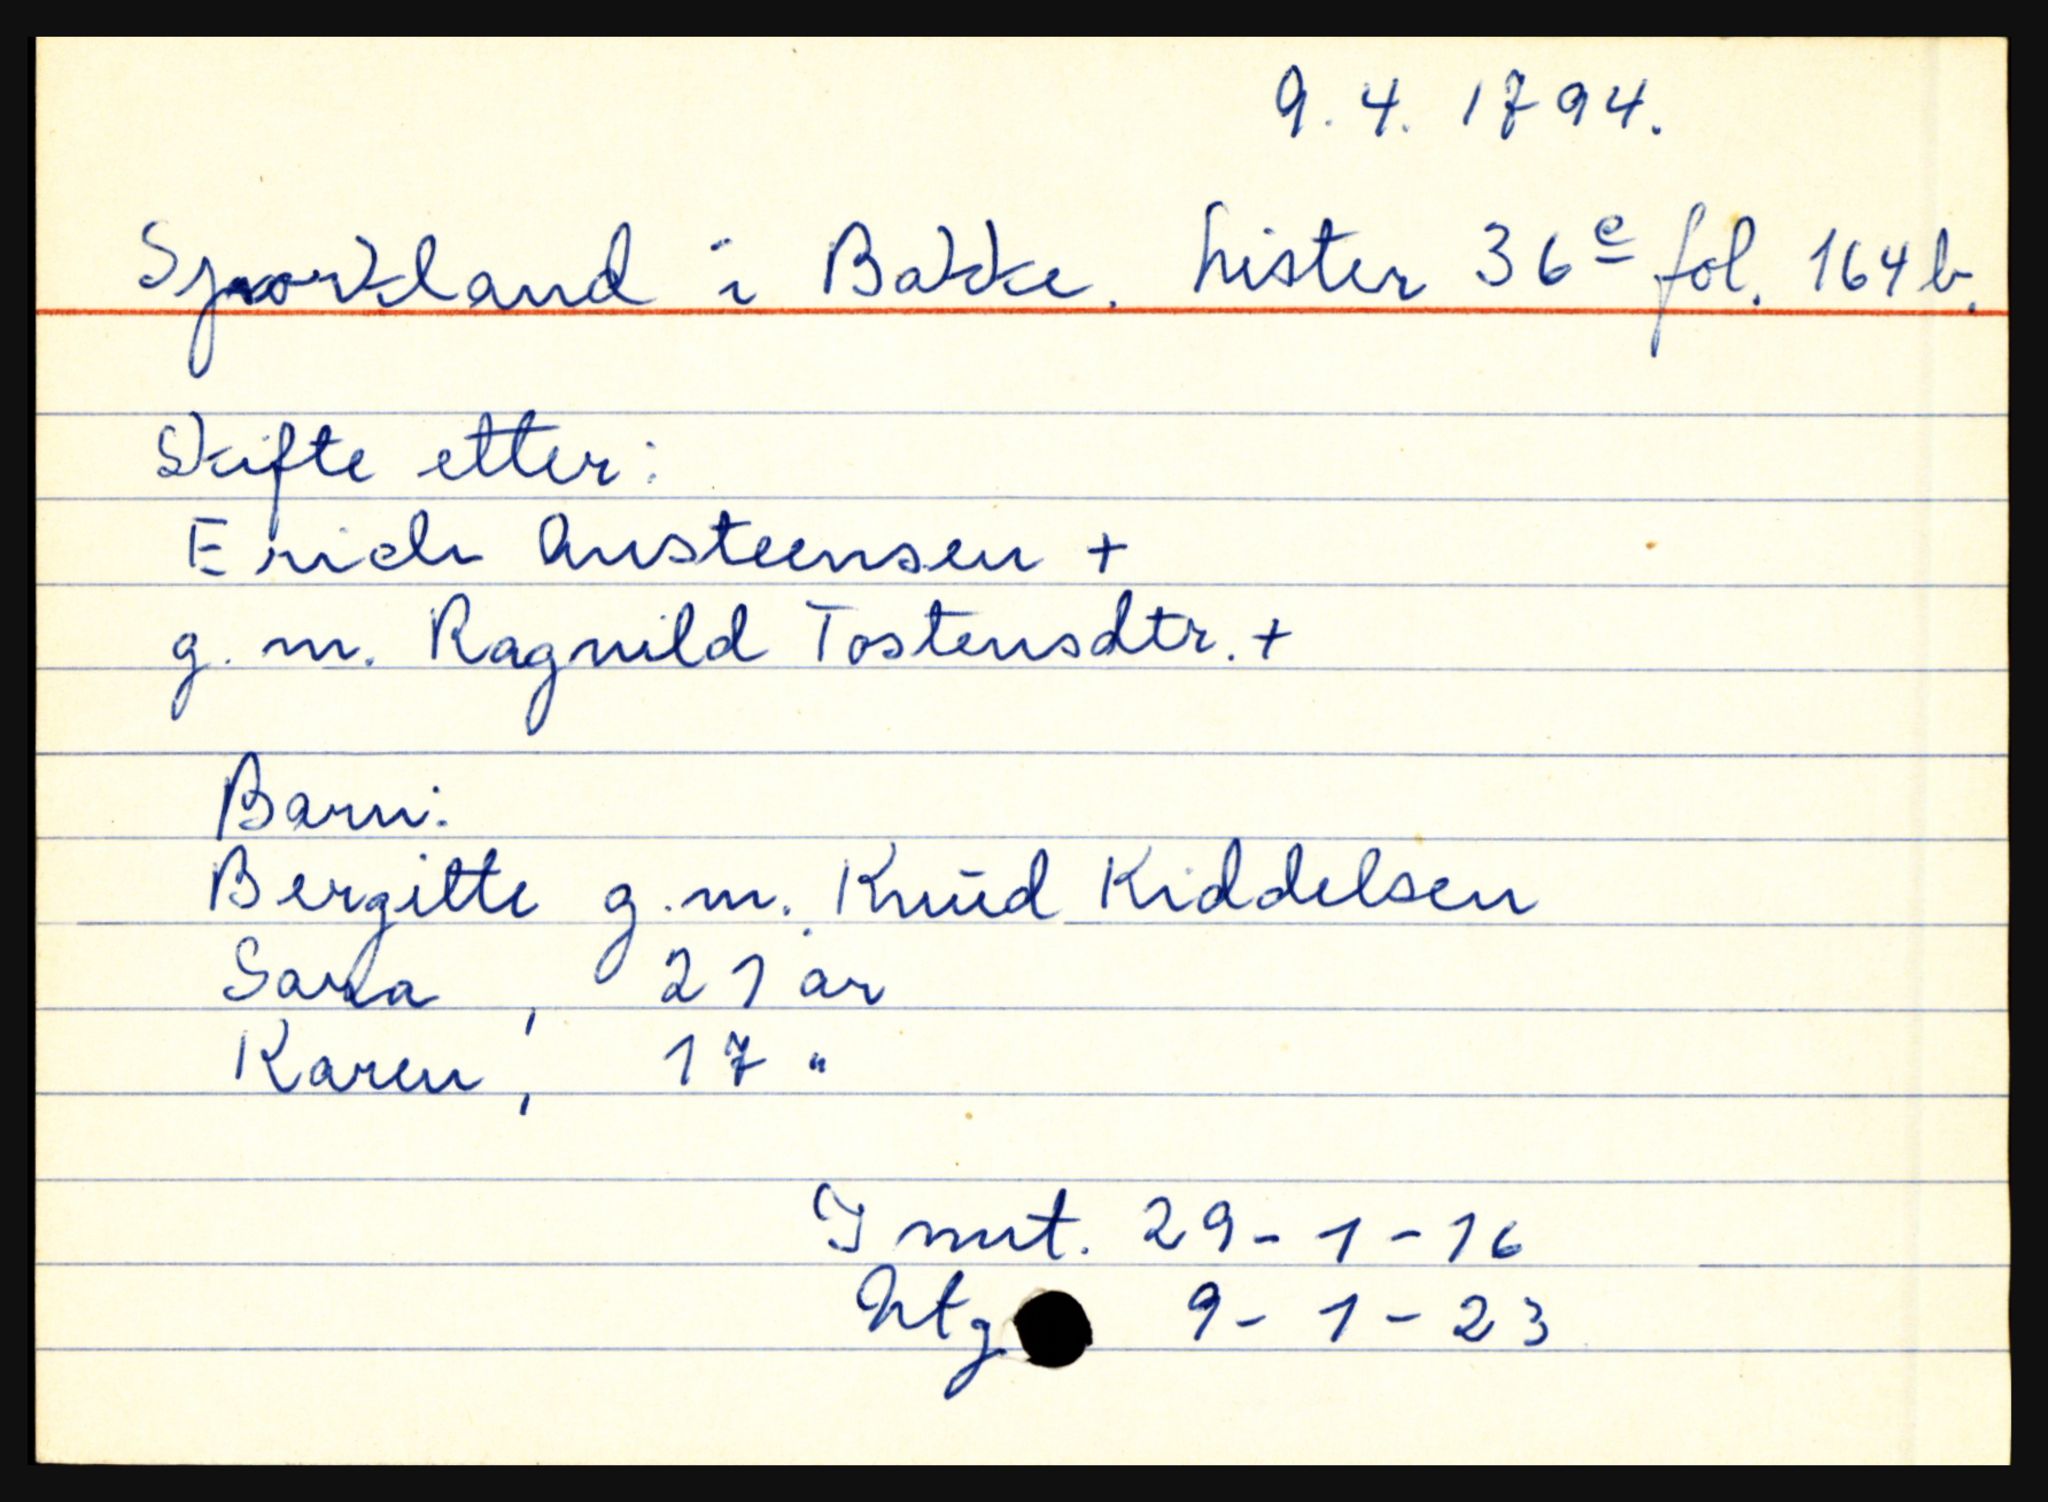 9.4. 1794.
Sjorkland i Bakke. Lister 36e fol. 164b.
Skifte etter:
Erich Austeensen +
g.m. Ragnild Tostensdtr. +
Barn:
Bergitte g.m. Knud Kiddelsen
Sara, 21 år
Karen, 17 "
I mrt. 29-1-16
Utg 9-1-23